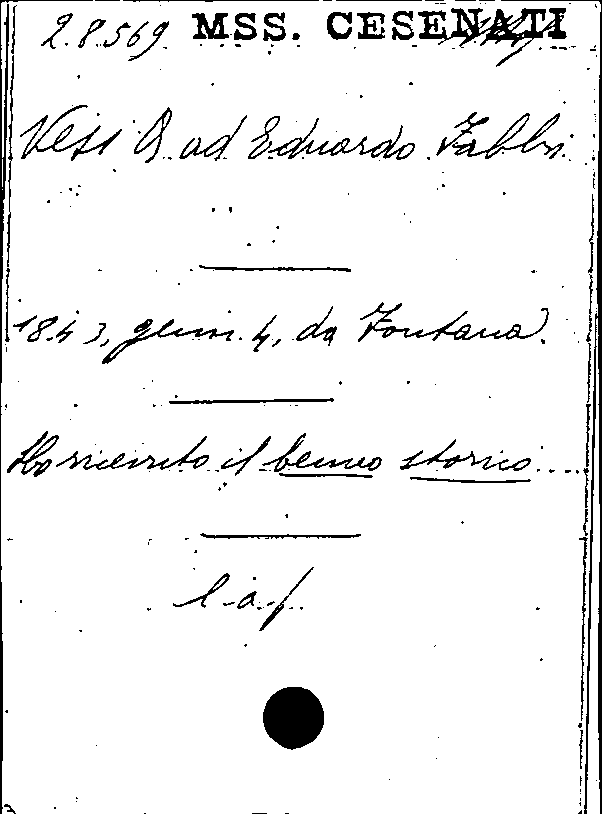 2.8.569 MSS. CESENATI
Vesi A ad Eduardo Fabbri
1843, genn. 4, da Fontana.
Ho ricevuto il cenno storico....
l.a.f.